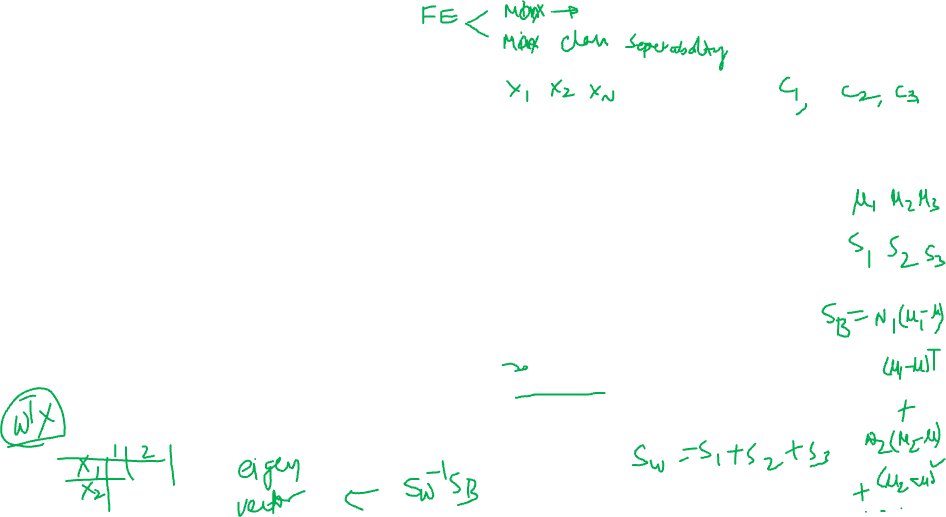 FE < Max →
Max class seperability
X1 X2 XN
C1, C2, C3
μ1 μ2 μ3
S1 S2 S3
SB = N1(μ1-μ)
(μ1-μ)^T
+
N2(μ2-μ)
+ (μ2-μ)^T
Sw = S1+S2+S3
Sw^-1 SB
← eigen
vector
W^T X
1 2
X1
X2